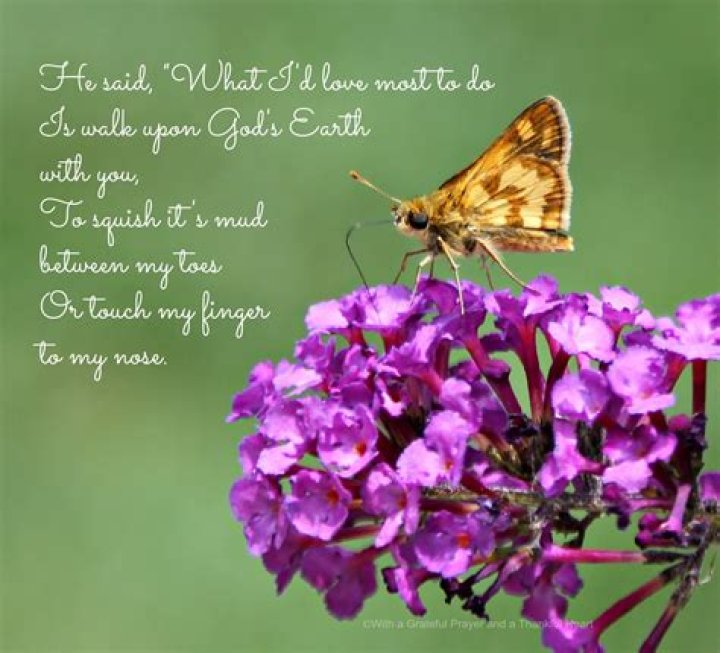 He said, "What I'd love most to do
Is walk upon God's Earth
with you,
To squish it's mud
between my toes
Or touch my finger
to my nose.
©With a Grateful Prayer and a Thankful Heart